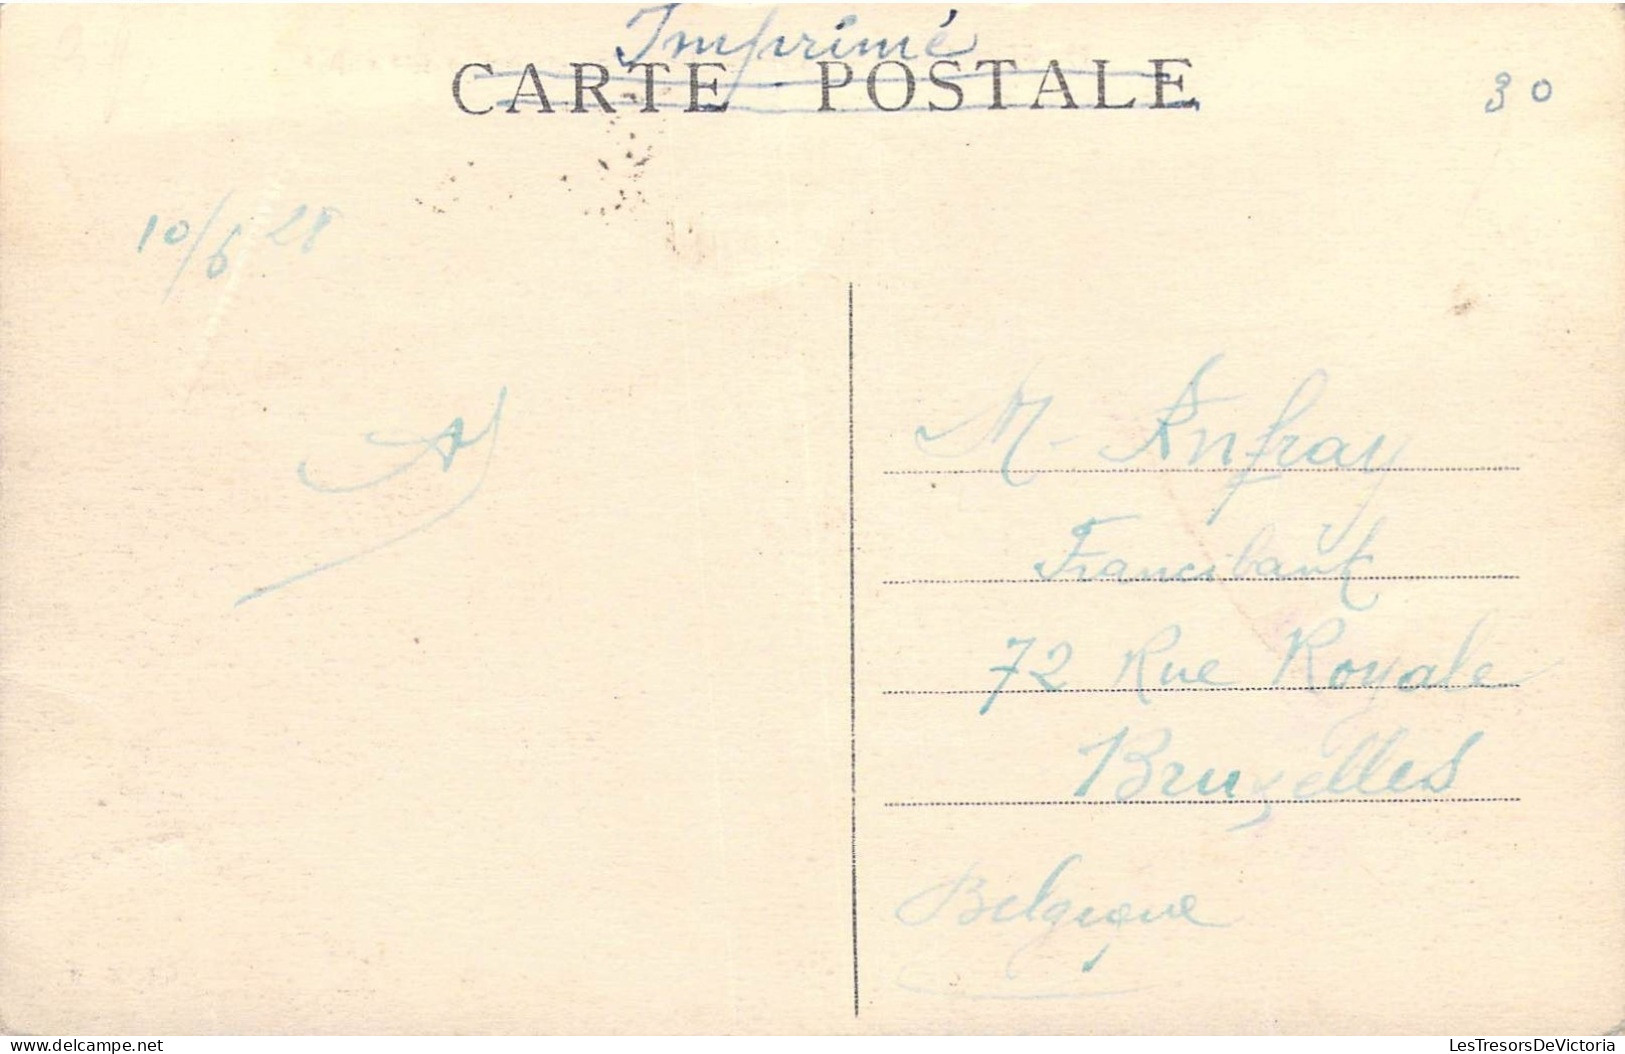 Imprimé
CARTE POSTALE
30
10/6 28
M. Anfray
Francibank
72 Rue Royale
Bruxelles
Belgique
LesTresorsDeVictoria